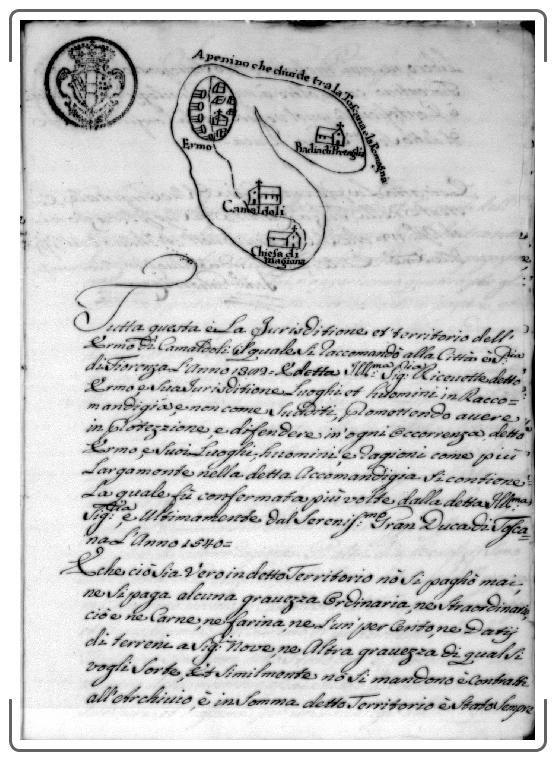 Apenino che diuide tra la Toscana e la Romagna
Ermo
Badia di Pretaglia
Camaldoli
Chiesa di
Magiona
Tutta questa è La Jurisditione et territorio dell'
Ermo di Camaldoli Il quale si raccomandò alla Città e Sig.ria
di Fiorenza L'Anno 1382. E detta Ill.ma Sig.ria Riceuette detto
Ermo e Sua Jurisditione Luoghi et huomini in Racco-
mandigia e non come Sudditi, Promettendo auere
in Protezzione, e difendere in ogni Occorrenza detto
Ermo e Suoi Luoghi, huomini, e ragioni come piu
Largamente nella detta Accomandigia si contiene
La quale fù confermata più volte dalla detta Ill.ma
Sig.ria e Ultimamente dal Serenis.mo Gran Duca di Tosca-
na L'Anno 1540=
E che ciò sia Vero in detto Territorio nō si pagliò mai,
ne si paga alcuna grauezza Ordinaria, ne Straordinaria,
ciò è ne Carne, ne farina, ne l'un' per Cento, ne Datij
di terreni a Sig.ri Noue, ne Altra grauezza di qual si
vogli Sorte, Et Similmente nō si mandono è Contratti
all'Archiuio, è in Somma detto Territorio è Stato Sempre